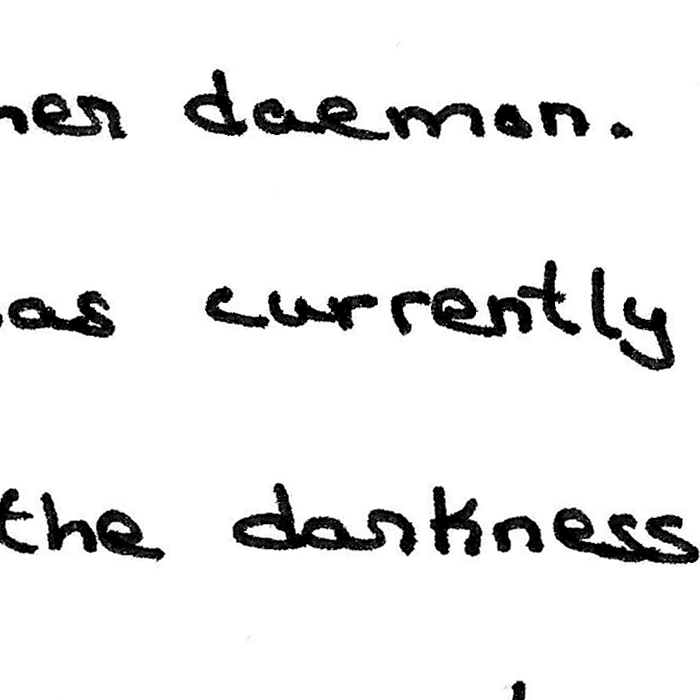 her daemon.
as currently
the darkness